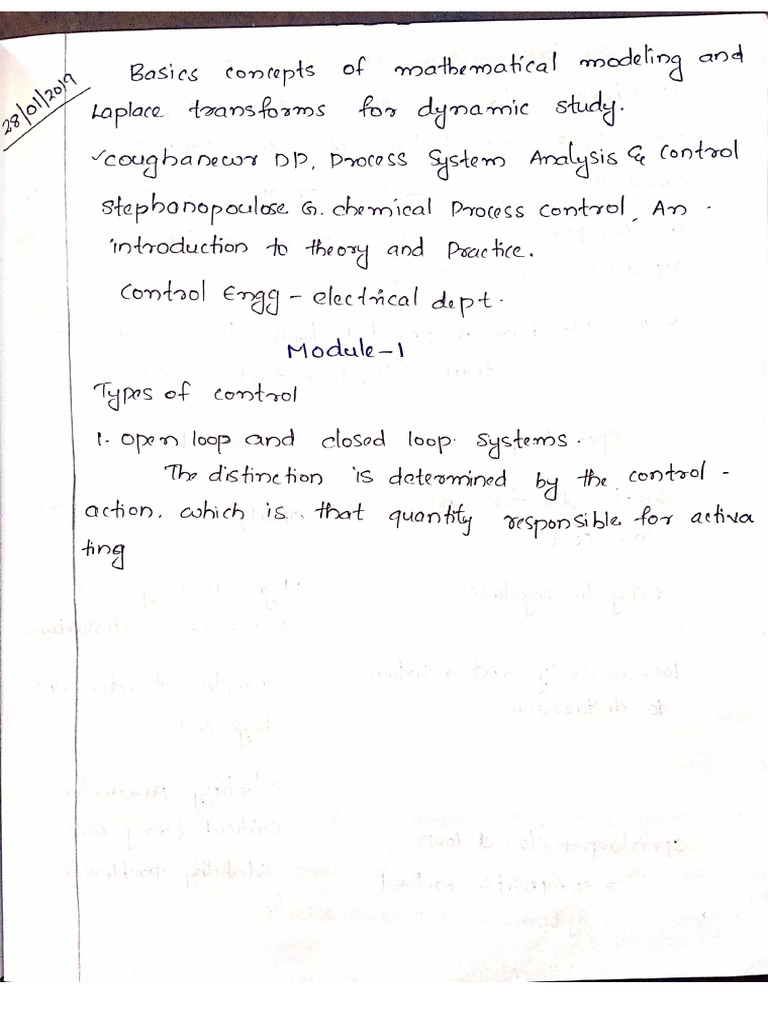 28/01/2019
Basics concepts of mathematical modeling and
Laplace transforms for dynamic study.
✓coughanecwr DD, Process System Analysis & control
Stephanopoulose G. chemical Process control, An
introduction to theory and Practice.
Control Engg - electrical dept.
Module-1
Types of control
1. open loop and closed loop systems.
The distinction is determined by the control -
action. which is that quantity responsible for activa
ting